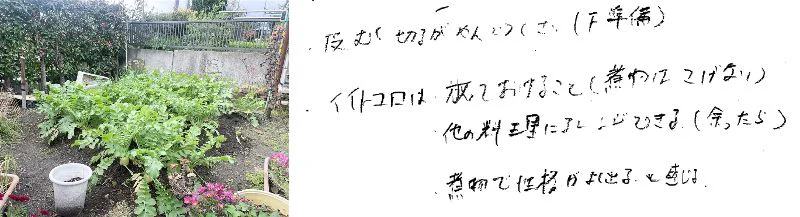 ・皮むく 切るが めんどうくさい(下準備)
・イイトコロは 放っておけること(煮ればほこげない)
他の料理にアレンジできる(余ったら)
・煮物で性格がよく出ると感じる